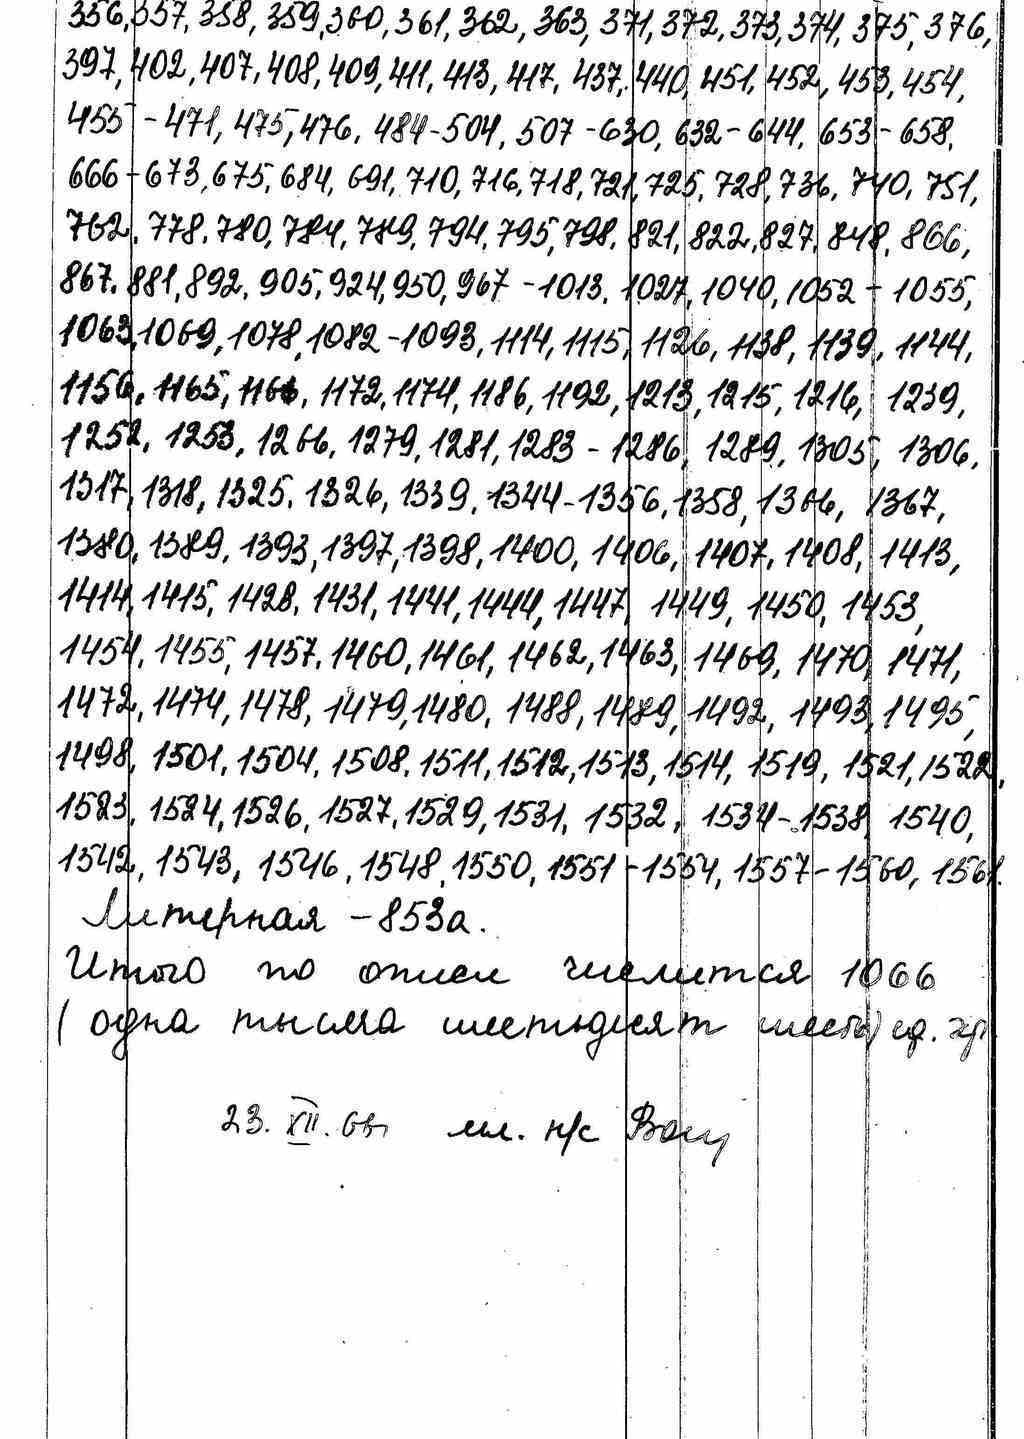 356, 357, 358, 359, 360, 361, 362, 363, 371, 372, 373, 374, 375, 376,
397, 402, 407, 408, 409, 411, 413, 417, 437, 440, 451, 452, 453, 454,
455 - 471, 475, 476, 484-504, 507 - 630, 632 - 644, 653 - 658,
666 - 673, 675, 684, 691, 710, 716, 718, 721, 725, 728, 736, 740, 751,
762, 778, 780, 784, 789, 794, 795, 798, 821, 822, 827, 848, 866,
867, 881, 892, 905, 924, 950, 967 - 1013, 1027, 1040, 1052 - 1055,
1063, 1069, 1078, 1082 - 1093, 1114, 1115, 1126, 1138, 1139, 1144,
1156, 1165, 1166, 1172, 1174, 1186, 1192, 1213, 1215, 1216, 1239,
1252, 1253, 1266, 1279, 1281, 1283 - 1286, 1289, 1305, 1306,
1317, 1318, 1325, 1326, 1339, 1344-1356, 1358, 1366, 1367,
1380, 1389, 1393, 1397, 1398, 1400, 1406, 1407, 1408, 1413,
1414, 1415, 1428, 1431, 1441, 1444, 1447, 1449, 1450, 1453,
1454, 1455, 1457, 1460, 1461, 1462, 1463, 1469, 1470, 1471,
1472, 1474, 1478, 1479, 1480, 1488, 1489, 1492, 1493, 1495,
1498, 1501, 1504, 1508, 1511, 1512, 1513, 1514, 1519, 1521, 1522,
1523, 1524, 1526, 1527, 1529, 1531, 1532, 1534-1538, 1540,
1542, 1543, 1546, 1548, 1550, 1551 - 1554, 1557 - 1560, 1561.
Литерная - 853а.
Итого по описи числится 1066
(одна тысяча шестьдесят шесть) ед. хр.
23. XII. мл. н/с